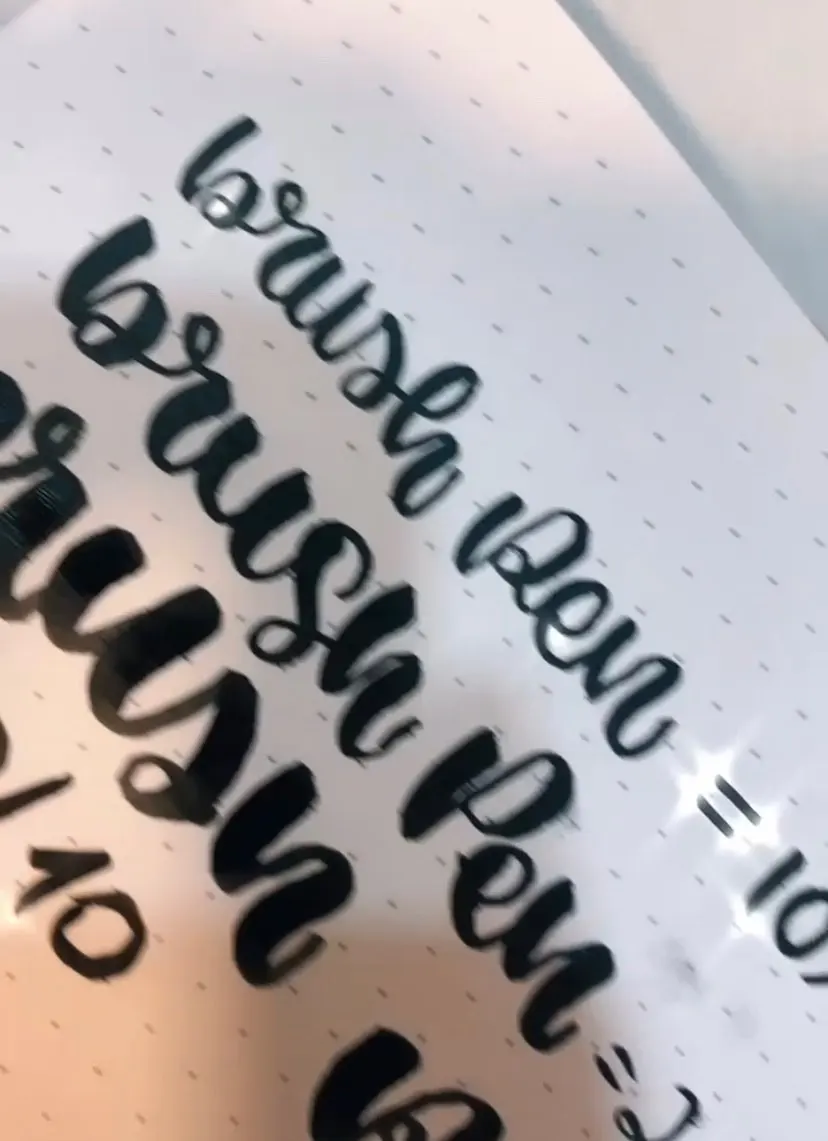 brush pen = 10
brush pen = 2
brush
/10